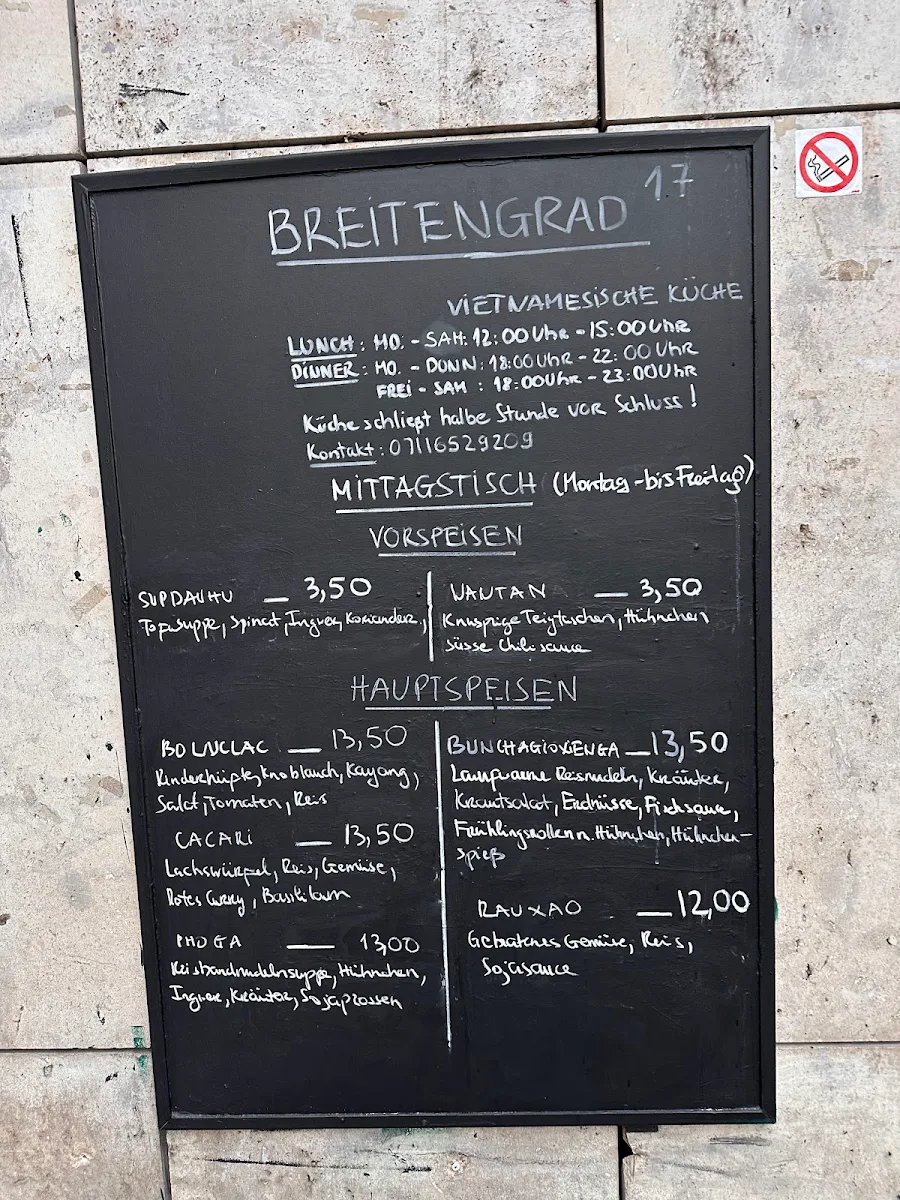 BREITENGRAD 17
VIETNAMESISCHE KÜCHE
LUNCH: MO. - SAM: 12:00 Uhr - 15:00 Uhr
DINNER: MO. - DONN: 18:00 Uhr - 22:00 Uhr
FREI - SAM : 18:00 Uhr - 23:00 Uhr
Küche schließt halbe Stunde vor Schluss!
Kontakt: 07116529209
MITTAGSTISCH (Montag - bis Freitag)
VORSPEISEN
SUPDAUHU — 3,50
Tofusuppe, Spinat, Ingwer, Koriander,
WANTAN — 3,50
Knusprige Teigtaschen, Hühnchen
süsse Chilisauce
HAUPTSPEISEN
BOLUCLAC — 13,50
Rinderhüfte, Knoblauch,
Salat, Tomaten, Reis
CACARI — 13,50
Lachswürfel, Reis, Gemüse,
Rotes Curry, Basilikum
PHO GA — 13,00
Reisbandnudelnsuppe, Hühnchen,
Ingwer, Kräuter, Sojaprossen
BUNCHAGIOXIENGA — 13,50
Lauwarme Reisnudeln, Kräuter,
Krautsalat, Erdnüsse, Fischsauce,
Frühlingsrollen n. Hühnchen, Hühnchen-
spieß
RAUXAO — 12,00
Gebratenes Gemüse, Reis,
Sojasauce